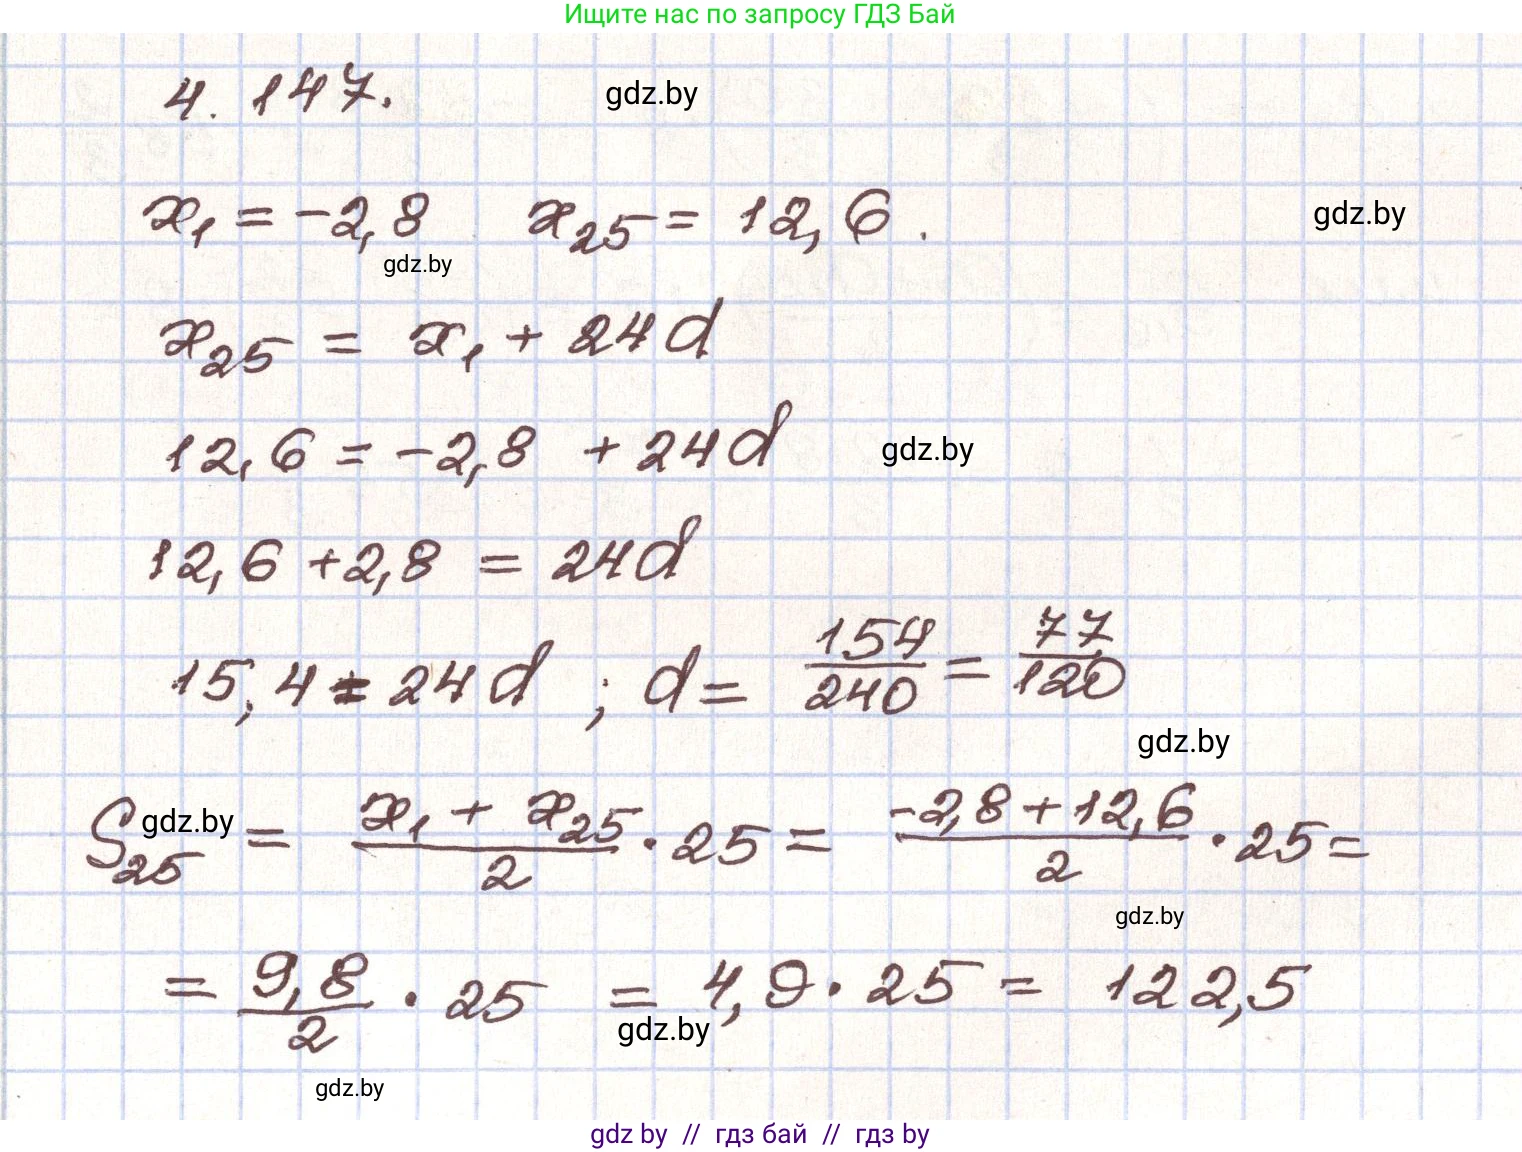 Ищите нас по запросу ГДЗ Бай
4.147.
gdz.by
x₁ = -2,8 x₂₅ = 12,6.
gdz.by
gdz.by
x₂₅ = x₁ + 24d
12,6 = -2,8 + 24d
gdz.by
12,6 + 2,8 = 24d
15,4 = 24d ; d = 154/240 = 77/120
gdz.by
gdz.by
S₂₅ = (x₁ + x₂₅)/2 · 25 = (-2,8 + 12,6)/2 · 25 =
gdz.by
= 9,8/2 · 25 = 4,9 · 25 = 122,5
gdz.by
gdz.by
gdz by // гдз бай // гдз by